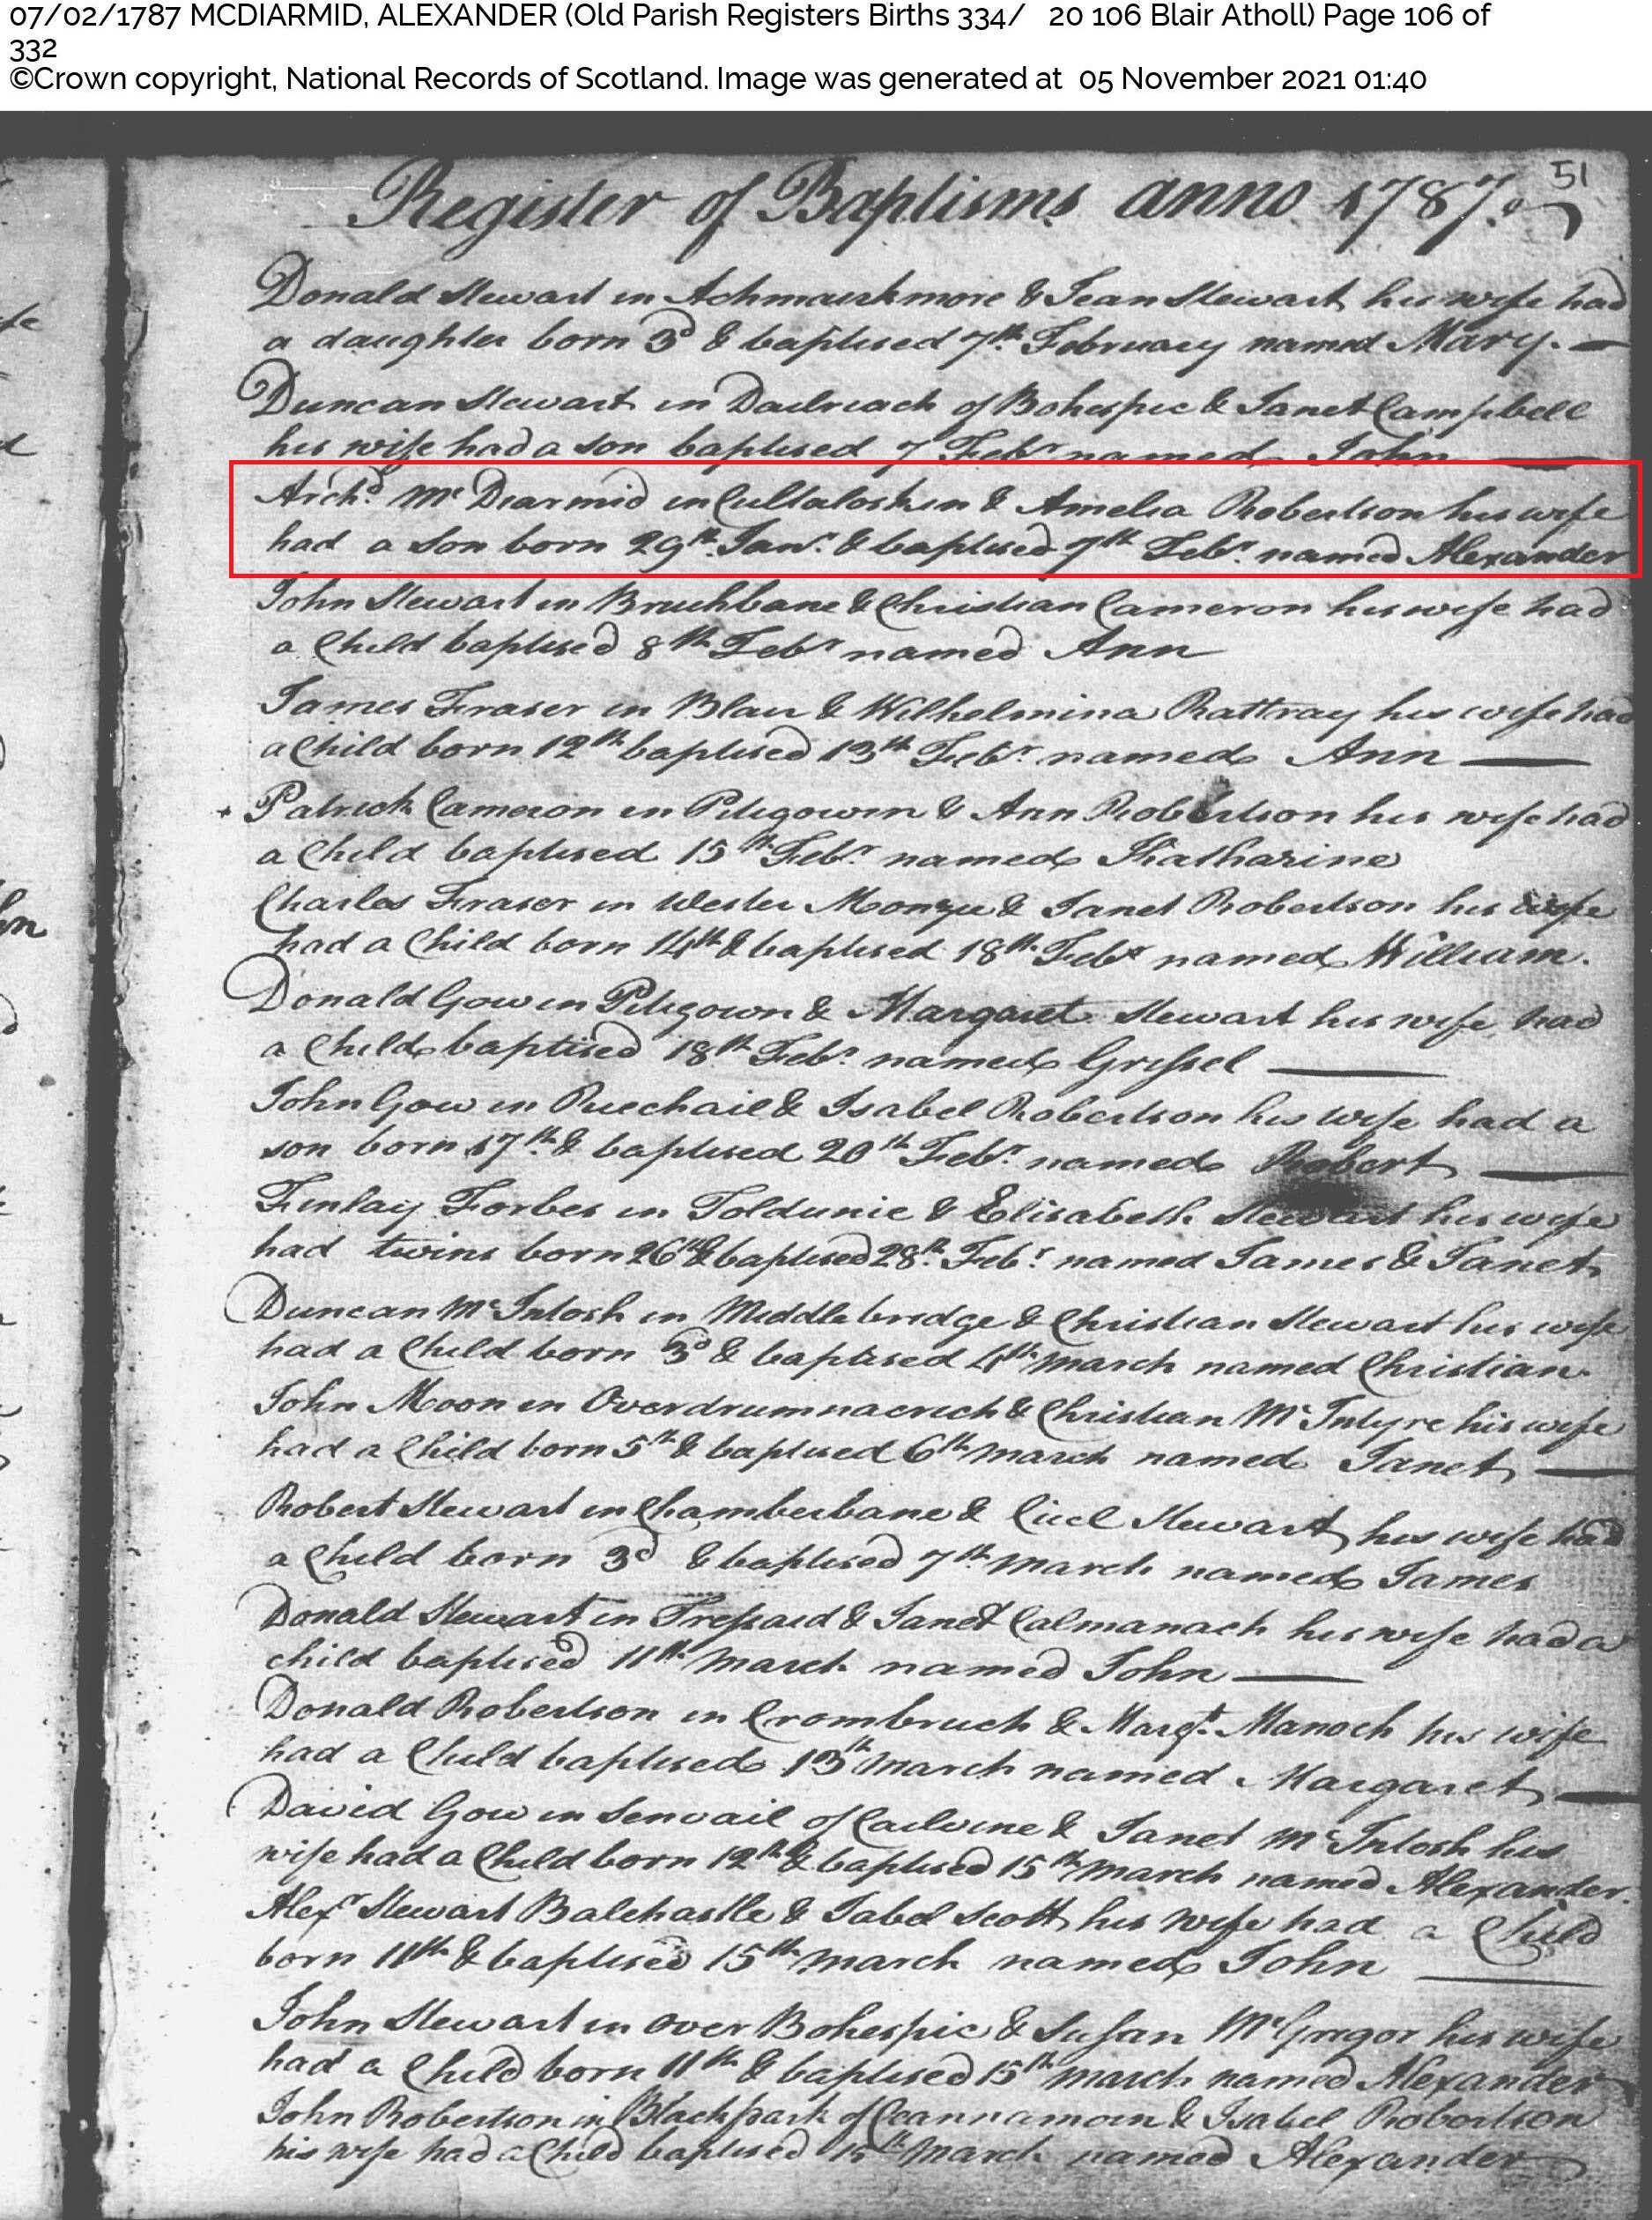 07/02/1787 MCDIARMID, ALEXANDER (Old Parish Registers Births 334/ 20 106 Blair Atholl) Page 106 of
332
©Crown copyright, National Records of Scotland. Image was generated at 05 November 2021 01:40
51
Register of Baptisms anno 1787.
Donald Stewart in Achmarkmore & Jean Stewart his wife had
a daughter born 3d & baptised 7th February named Mary.
Duncan Stewart in Dailreach of Bohespic & Janet Campbell
his wife had a son baptised 7 Febr named John
Archd Mc Diarmid in Cultaloskin & Amelia Robertson his wife
had a son born 29th Janr. & baptised 7th Febr. named Alexander
John Stewart in Bruchbane & Christian Cameron his wife had
a Child baptised 8th Febr named Ann
James Fraser in Blair & Wilhelmina Rattray his wife had
a Child born 12th baptised 13th Febr. named Ann
+ Patrick Cameron in Pitigowin & Ann Robertson his wife had
a Child baptised 15th Febr. named Katharine
Charles Fraser in Wester Monzie & Janet Robertson his wife
had a Child born 14th & baptised 18th Febr named William.
Donald Gow in Pitigown & Margaret Stewart his wife had
a Child baptised 18th Febr. named Grissel
John Gow in Ruechail & Isabel Robertson his wife had a
son born 17th & baptised 20th Febr. named Robert
Finlay Forbes in Toldunie & Elisabeth Stewart his wife
had twins born 26th & baptised 28th Febr named James & Janet
Duncan McIntosh in Middlebridge & Christian Stewart his wife
had a Child born 3d & baptised 4th March named Christian.
John Moon in Overdrumnacrich & Christian McIntyre his wife
had a Child born 5th & baptised 6th March named Janet
Robert Stewart in Chamberbane & Cicel Stewart his wife had
a Child born 3d & baptised 7th March named James
Donald Stewart in Tressaid & Janet Calmanach his wife had a
child baptised 11th March named John
Donald Robertson in Crombruch & Margt. Manoch his wife
had a Child baptised 13th March named Margaret
David Gow in Senvail of Calvine & Janet McIntosh his
wife had a Child born 12th & baptised 15th March named Alexander.
Alexr Stewart Balchastle & Isabel Scott his wife had a Child
born 11th & baptised 15th March named John
John Stewart in over Bohespic & Susan McGregor his wife
had a Child born 11th & baptised 15th March named Alexander
John Robertson in Blackpark of & Isabel Robertson
his wife had a Child baptised 15th March named Alexander